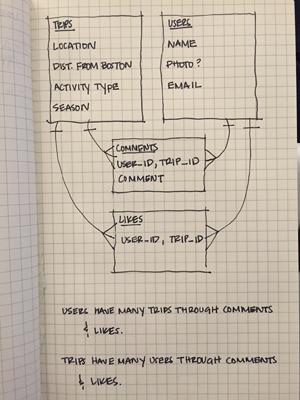 TRIPS
LOCATION
DIST. FROM BOSTON
ACTIVITY TYPE
SEASON
USERS
NAME
PHOTO?
EMAIL
COMMENTS
USER_ID, TRIP_ID
COMMENT
LIKES
USER_ID, TRIP_ID
USERS HAVE MANY TRIPS THROUGH COMMENTS
& LIKES.
TRIPS HAVE MANY USERS THROUGH COMMENTS
& LIKES.